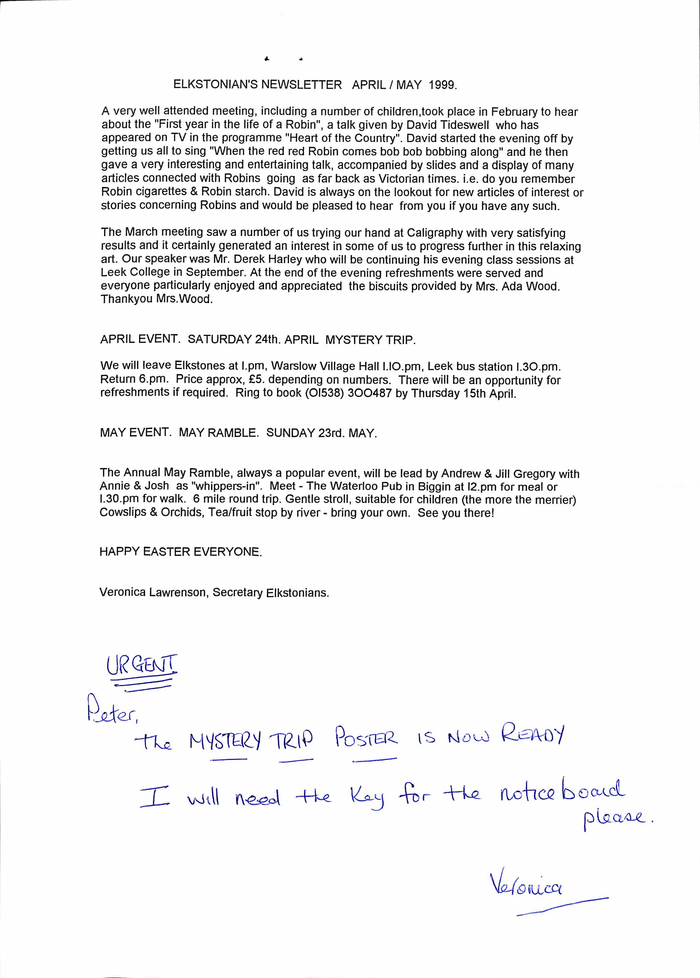 ELKSTONIAN'S NEWSLETTER APRIL / MAY 1999.
A very well attended meeting, including a number of children,took place in February to hear
about the "First year in the life of a Robin", a talk given by David Tideswell who has
appeared on TV in the programme "Heart of the Country". David started the evening off by
getting us all to sing "When the red red Robin comes bob bob bobbing along" and he then
gave a very interesting and entertaining talk, accompanied by slides and a display of many
articles connected with Robins going as far back as Victorian times. i.e. do you remember
Robin cigarettes & Robin starch. David is always on the lookout for new articles of interest or
stories concerning Robins and would be pleased to hear from you if you have any such.
The March meeting saw a number of us trying our hand at Caligraphy with very satisfying
results and it certainly generated an interest in some of us to progress further in this relaxing
art. Our speaker was Mr. Derek Harley who will be continuing his evening class sessions at
Leek College in September. At the end of the evening refreshments were served and
everyone particularly enjoyed and appreciated the biscuits provided by Mrs. Ada Wood.
Thankyou Mrs.Wood.
APRIL EVENT. SATURDAY 24th. APRIL MYSTERY TRIP.
We will leave Elkstones at I.pm, Warslow Village Hall I.IO.pm, Leek bus station I.3O.pm.
Return 6.pm. Price approx, £5. depending on numbers. There will be an opportunity for
refreshments if required. Ring to book (OI538) 3OO487 by Thursday 15th April.
MAY EVENT. MAY RAMBLE. SUNDAY 23rd. MAY.
The Annual May Ramble, always a popular event, will be lead by Andrew & Jill Gregory with
Annie & Josh as "whippers-in". Meet - The Waterloo Pub in Biggin at I2.pm for meal or
I.30.pm for walk. 6 mile round trip. Gentle stroll, suitable for children (the more the merrier)
Cowslips & Orchids, Tea/fruit stop by river - bring your own. See you there!
HAPPY EASTER EVERYONE.
Veronica Lawrenson, Secretary Elkstonians.
URGENT
Peter,
the MYSTERY TRIP POSTER IS NOW READY
I will need the key for the notice board
please.
Veronica